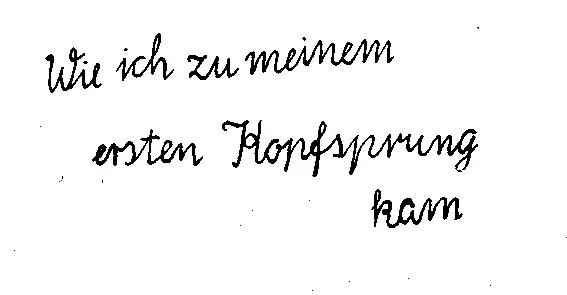 Wie ich zu meinem
ersten Kopfsprung
kam